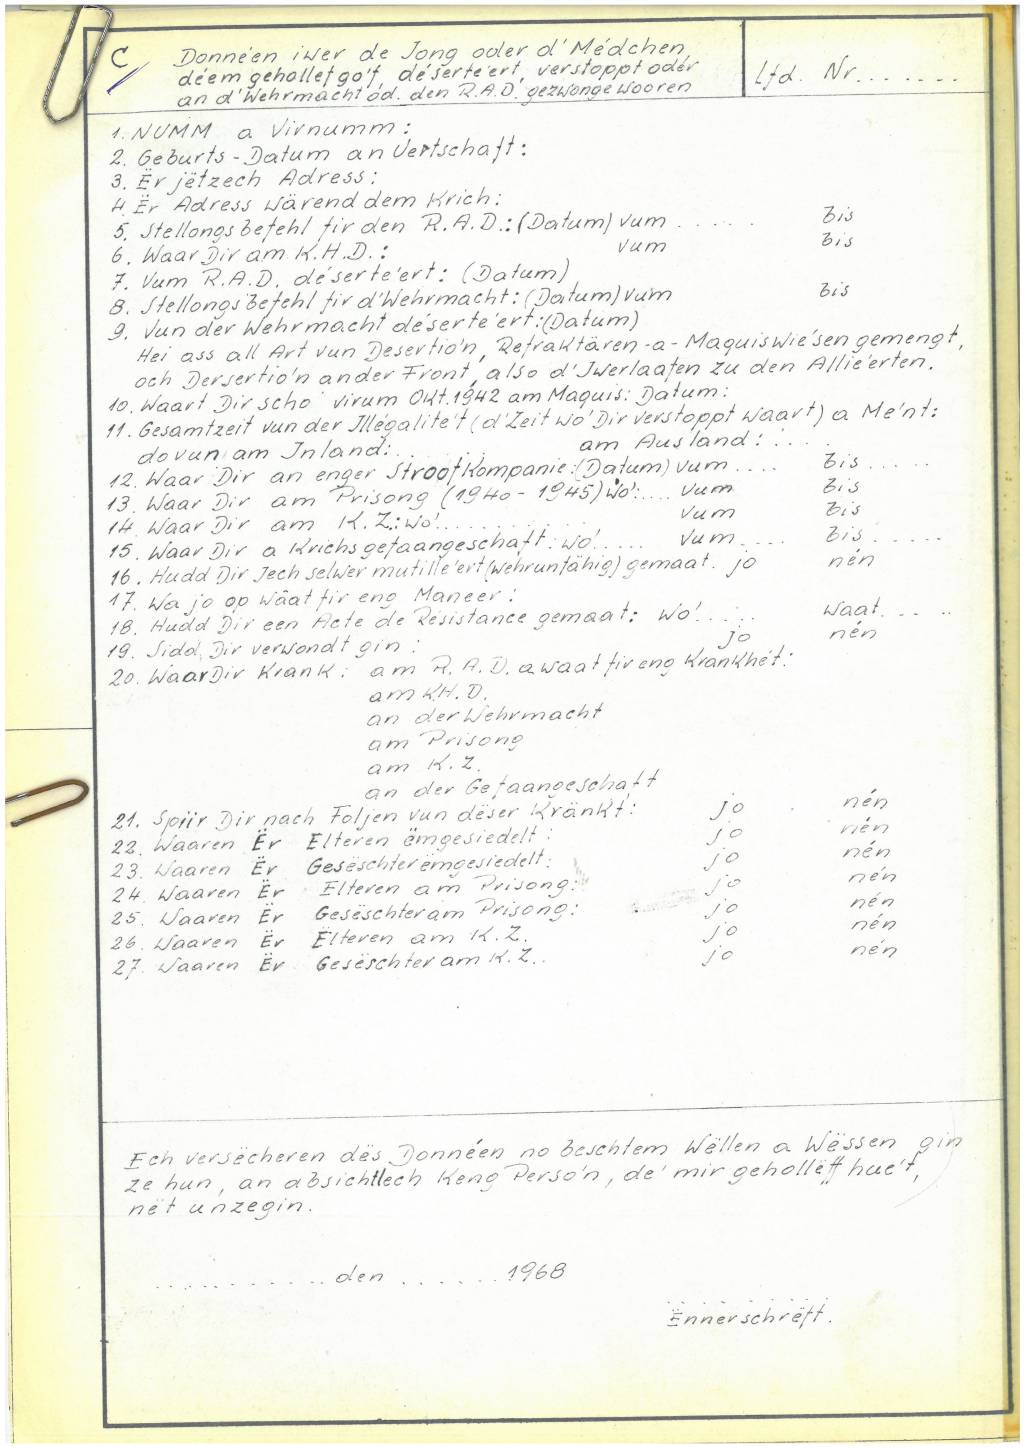 C Donnéen iwer de Jong oder d'Médchen,
déem gehollef go'f, déserte'ert, verstoppt oder
an d'Wehrmacht od. den R.A.D. gezwonge wooren
Lfd. Nr.......
1. NUMM a Virnumm:
2. Geburts-Datum an Uertschaft:
3. Ër jëtzech Adress:
4. Ër Adress wärend dem Krich:
5. Stellongsbefehl fir den R.A.D.: (Datum) vum ...... bis
6. Waar Dir am K.H.D.: vum bis
7. Vum R.A.D. déserte'ert: (Datum)
8. Stellongsbefehl fir d'Wehrmacht: (Datum) vum bis
9. Vun der Wehrmacht déserte'ert: (Datum)
Hei ass all Art vun Desertio'n, Refraktären-a-Maquiswiésen gemengt,
och Dersertio'n an der Front, also d'Iwerlaafen zu den Allie'erten.
10. Waart Dir scho' virum Okt. 1942 am Maquis: Datum:
11. Gesamtzeit vun der Illégalite't (d'Zeit wo' Dir verstoppt waart) a Mént:
dovun am Inland:....... am Ausland: .....
12. Waar Dir an enger Stroofkompanie: (Datum) vum .... bis .....
13. Waar Dir am Prisong (1940-1945) wo':.... vum bis
14. Waar Dir am K.Z.: wo'........... vum bis
15. Waar Dir a Krichsgefaangeschaft: wo'..... vum.... bis ......
16. Hudd Dir Iech selwer mutille'ert (wehrunfähig) gemaat. jo nén
17. Wa jo op wäat fir eng Maneer:
18. Hudd Dir een Acte de Résistance gemaat: wo'..... waat.....
19. Sidd Dir verwondt gin: jo nén
20. Waar Dir Krank: am R.A.D. a waat fir eng Krankhét:
am KH.D.
an der Wehrmacht
am Prisong
am K.Z.
an der Gefaangeschaft
21. Spiir Dir nach Foljen vun dëser Kränkt: jo nén
22. Waaren Ër Elteren ëmgesiedelt: jo nén
23. Waaren Ër Gesëschter ëmgesiedelt: jo nén
24. Waaren Ër Elteren am Prisong: jo nén
25. Waaren Ër Gesëschter am Prisong: jo nén
26. Waaren Ër Elteren am K.Z. jo nén
27. Waaren Ër Gesëschter am K.Z.. jo nén
Ech versëcheren dës Donnéen no beschtem Wëllen a Wëssen gin
ze hun, an absichtlech keng Perso'n, de' mir gehollëff hue't,
nët unzegin.
........... den ....... 1968
Ënnerschrëft.